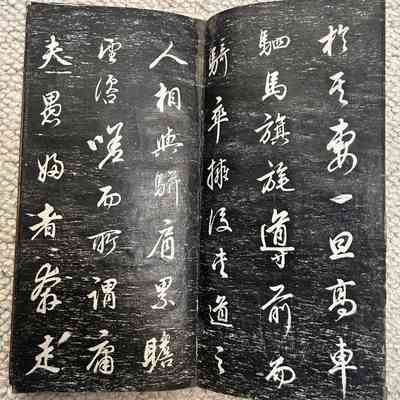 於其妻一旦高車
駟馬旗旄導前而
騎卒擁後夾道之
人相與駢肩累瞻
望咨嗟而所謂庸
夫愚婦者奔走